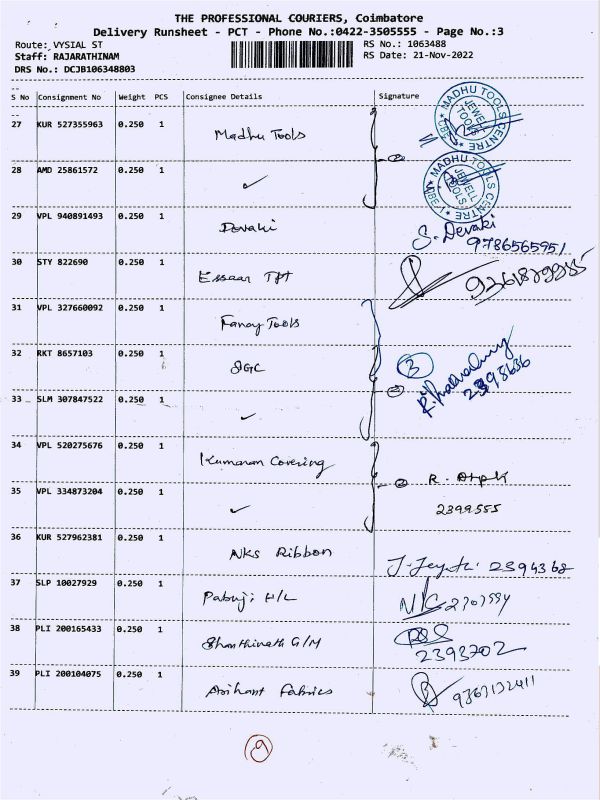 THE PROFESSIONAL COURIERS, Coimbatore
Delivery Runsheet - PCT - Phone No.:0422-3505555 - Page No.:3
Route: VYSIAL ST RS No.: 1063488
Staff: RAJARATHINAM RS Date: 21-Nov-2022
DRS No.: DCJB106348803
S No Consignment No Weight PCS Consignee Details Signature
27 KUR 527355963 0.250 1 Madhu Tools MADHU TOOLS CENTRE JEWELL TOOLS
28 AMD 25861572 0.250 1 ✓ MADHU TOOLS CENTRE JEWELL TOOLS
29 VPL 940891493 0.250 1 Devaki S. Devaki
9786565951
30 STY 822690 0.250 1 Essaar TPT
31 VPL 327660092 0.250 1 Fancy Tools
32 RKT 8657103 0.250 1 JGC 3
2398636
33 SLM 307847522 0.250 1 ✓
34 VPL 520275676 0.250 1 Kumaran Covering R.
35 VPL 334873204 0.250 1 ✓ 2399555
36 KUR 527962381 0.250 1 NKS Ribbon 2394368
37 SLP 10027929 0.250 1 Pabuji H/L
38 PLI 200165433 0.250 1 Shanthinath G/M
2393202
39 PLI 200104075 0.250 1 Arihant Fabrics 9367132411
9